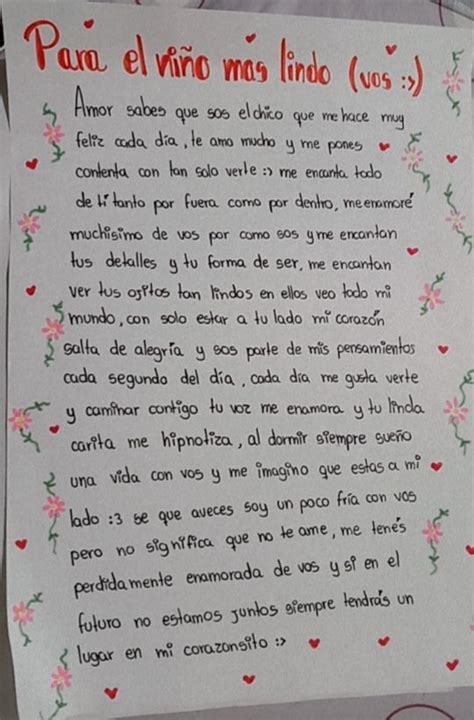 Para el niño mas lindo (vos :>)
Amor sabes que sos el chico que me hace muy
feliz cada día, te amo mucho y me pones
contenta con tan solo verte :> me encanta todo
de ti tanto por fuera como por dentro, me enamoré
muchisimo de vos por como sos y me encantan
tus detalles y tu forma de ser, me encantan
ver tus ojitos tan lindos en ellos veo todo mi
mundo, con solo estar a tu lado mi corazón
salta de alegría y sos parte de mis pensamientos
cada segundo del día, cada día me gusta verte
y caminar contigo tu voz me enamora y tu linda
carita me hipnotiza, al dormir siempre sueño
una vida con vos y me imagino que estas a mi
lado :3 se que aveces soy un poco fría con vos
pero no significa que no te ame, me tenés
perdidamente enamorada de vos y si en el
futuro no estamos juntos siempre tendrás un
lugar en mi corazonsito :>